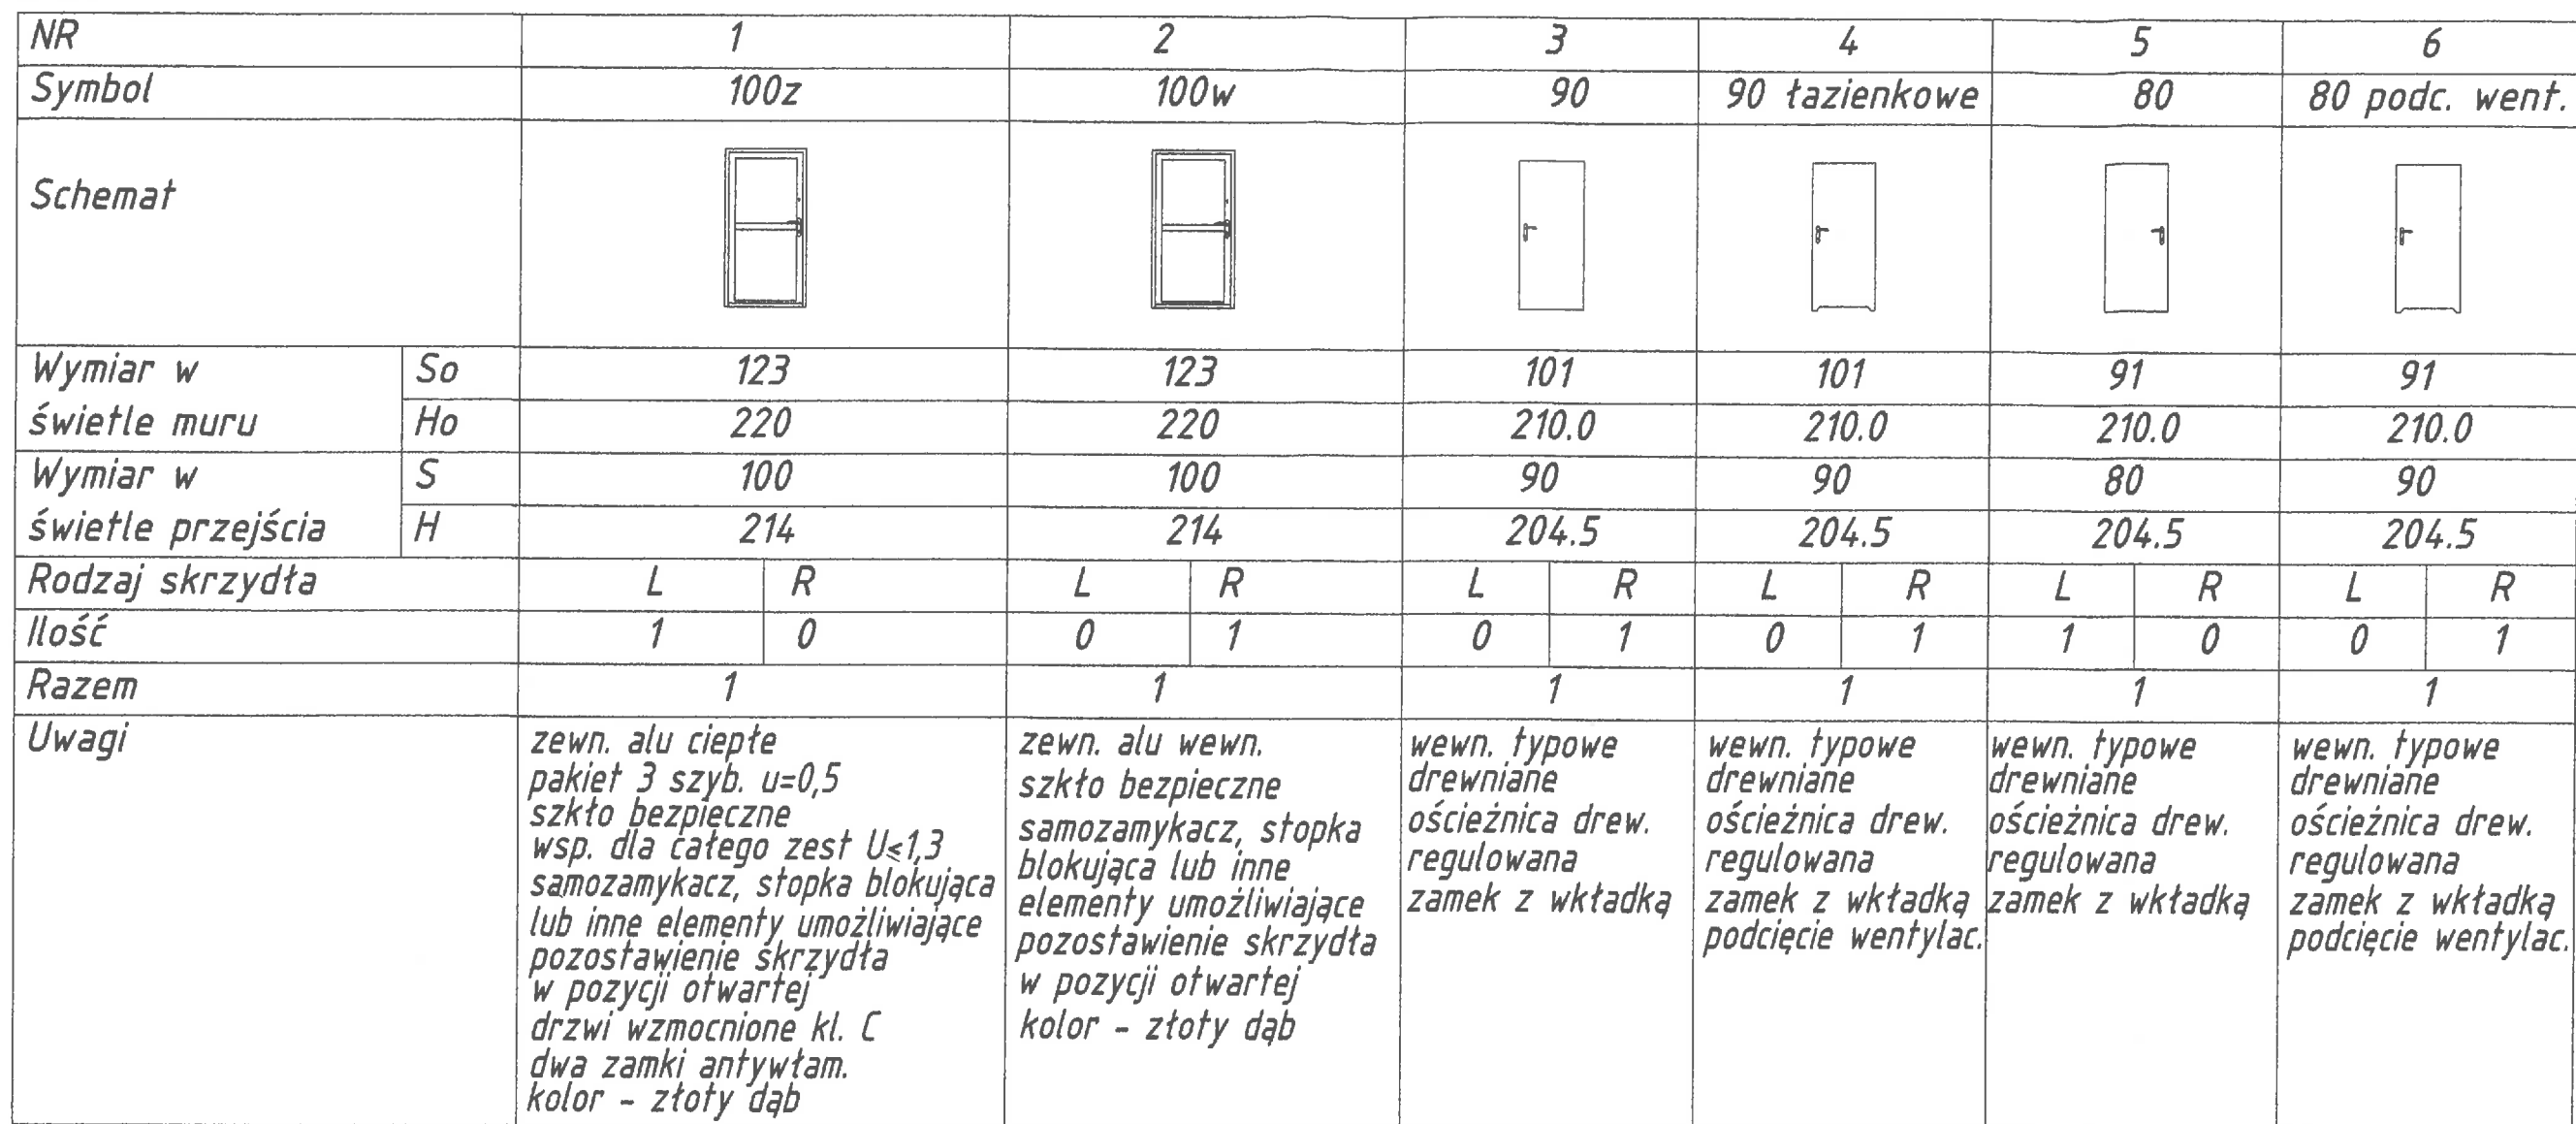 NR 1 2 3 4 5 6
Symbol 100z 100w 90 90 łazienkowe 80 80 podc. went.
Schemat
Wymiar w So 123 123 101 101 91 91
świetle muru Ho 220 220 210.0 210.0 210.0 210.0
Wymiar w S 100 100 90 90 80 90
świetle przejścia H 214 214 204.5 204.5 204.5 204.5
Rodzaj skrzydła L R L R L R L R L R L R
Ilość 1 0 0 1 0 1 0 1 1 0 0 1
Razem 1 1 1 1 1 1
Uwagi
zewn. alu ciepłe
pakiet 3 szyb. u=0,5
szkło bezpieczne
wsp. dla całego zest U≤1,3
samozamykacz, stopka blokująca
lub inne elementy umożliwiające
pozostawienie skrzydła
w pozycji otwartej
drzwi wzmocnione kl. C
dwa zamki antywłam.
kolor - złoty dąb
zewn. alu wewn.
szkło bezpieczne
samozamykacz, stopka
blokująca lub inne
elementy umożliwiające
pozostawienie skrzydła
w pozycji otwartej
kolor - złoty dąb
wewn. typowe
drewniane
ościeżnica drew.
regulowana
zamek z wkładką
wewn. typowe
drewniane
ościeżnica drew.
regulowana
zamek z wkładką
podcięcie wentylac.
wewn. typowe
drewniane
ościeżnica drew.
regulowana
zamek z wkładką
wewn. typowe
drewniane
ościeżnica drew.
regulowana
zamek z wkładką
podcięcie wentylac.